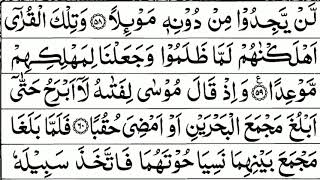 لَّنْ يَّجِدُوْا مِنْ دُوْنِهٖ مَوْئِلًا ﴿۵۸﴾ وَتِلْكَ الْقُرٰۤى
اَهْلَكْنٰهُمْ لَمَّا ظَلَمُوْا وَجَعَلْنَا لِمَهْلِكِهِمْ
مَّوْعِدًا ﴿۵۹﴾ ع وَاِذْ قَالَ مُوْسٰى لِفَتٰىهُ لَاۤ اَبْرَحُ حَتّٰۤى
اَبْلُغَ مَجْمَعَ الْبَحْرَيْنِ اَوْ اَمْضِىَ حُقُبًا ﴿۶۰﴾ فَلَمَّا بَلَغَا
مَجْمَعَ بَيْنِهِمَا نَسِيَا حُوْتَهُمَا فَاتَّخَذَ سَبِيْلَهٗ